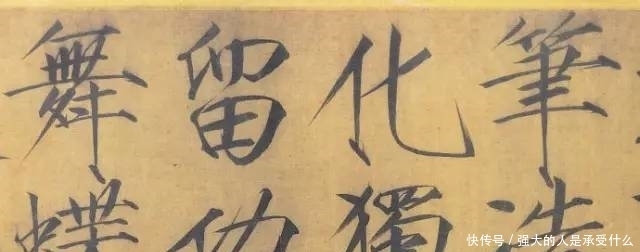 筆造
化獨
留功
舞蝶
快传号 / 強大的人是承受什么